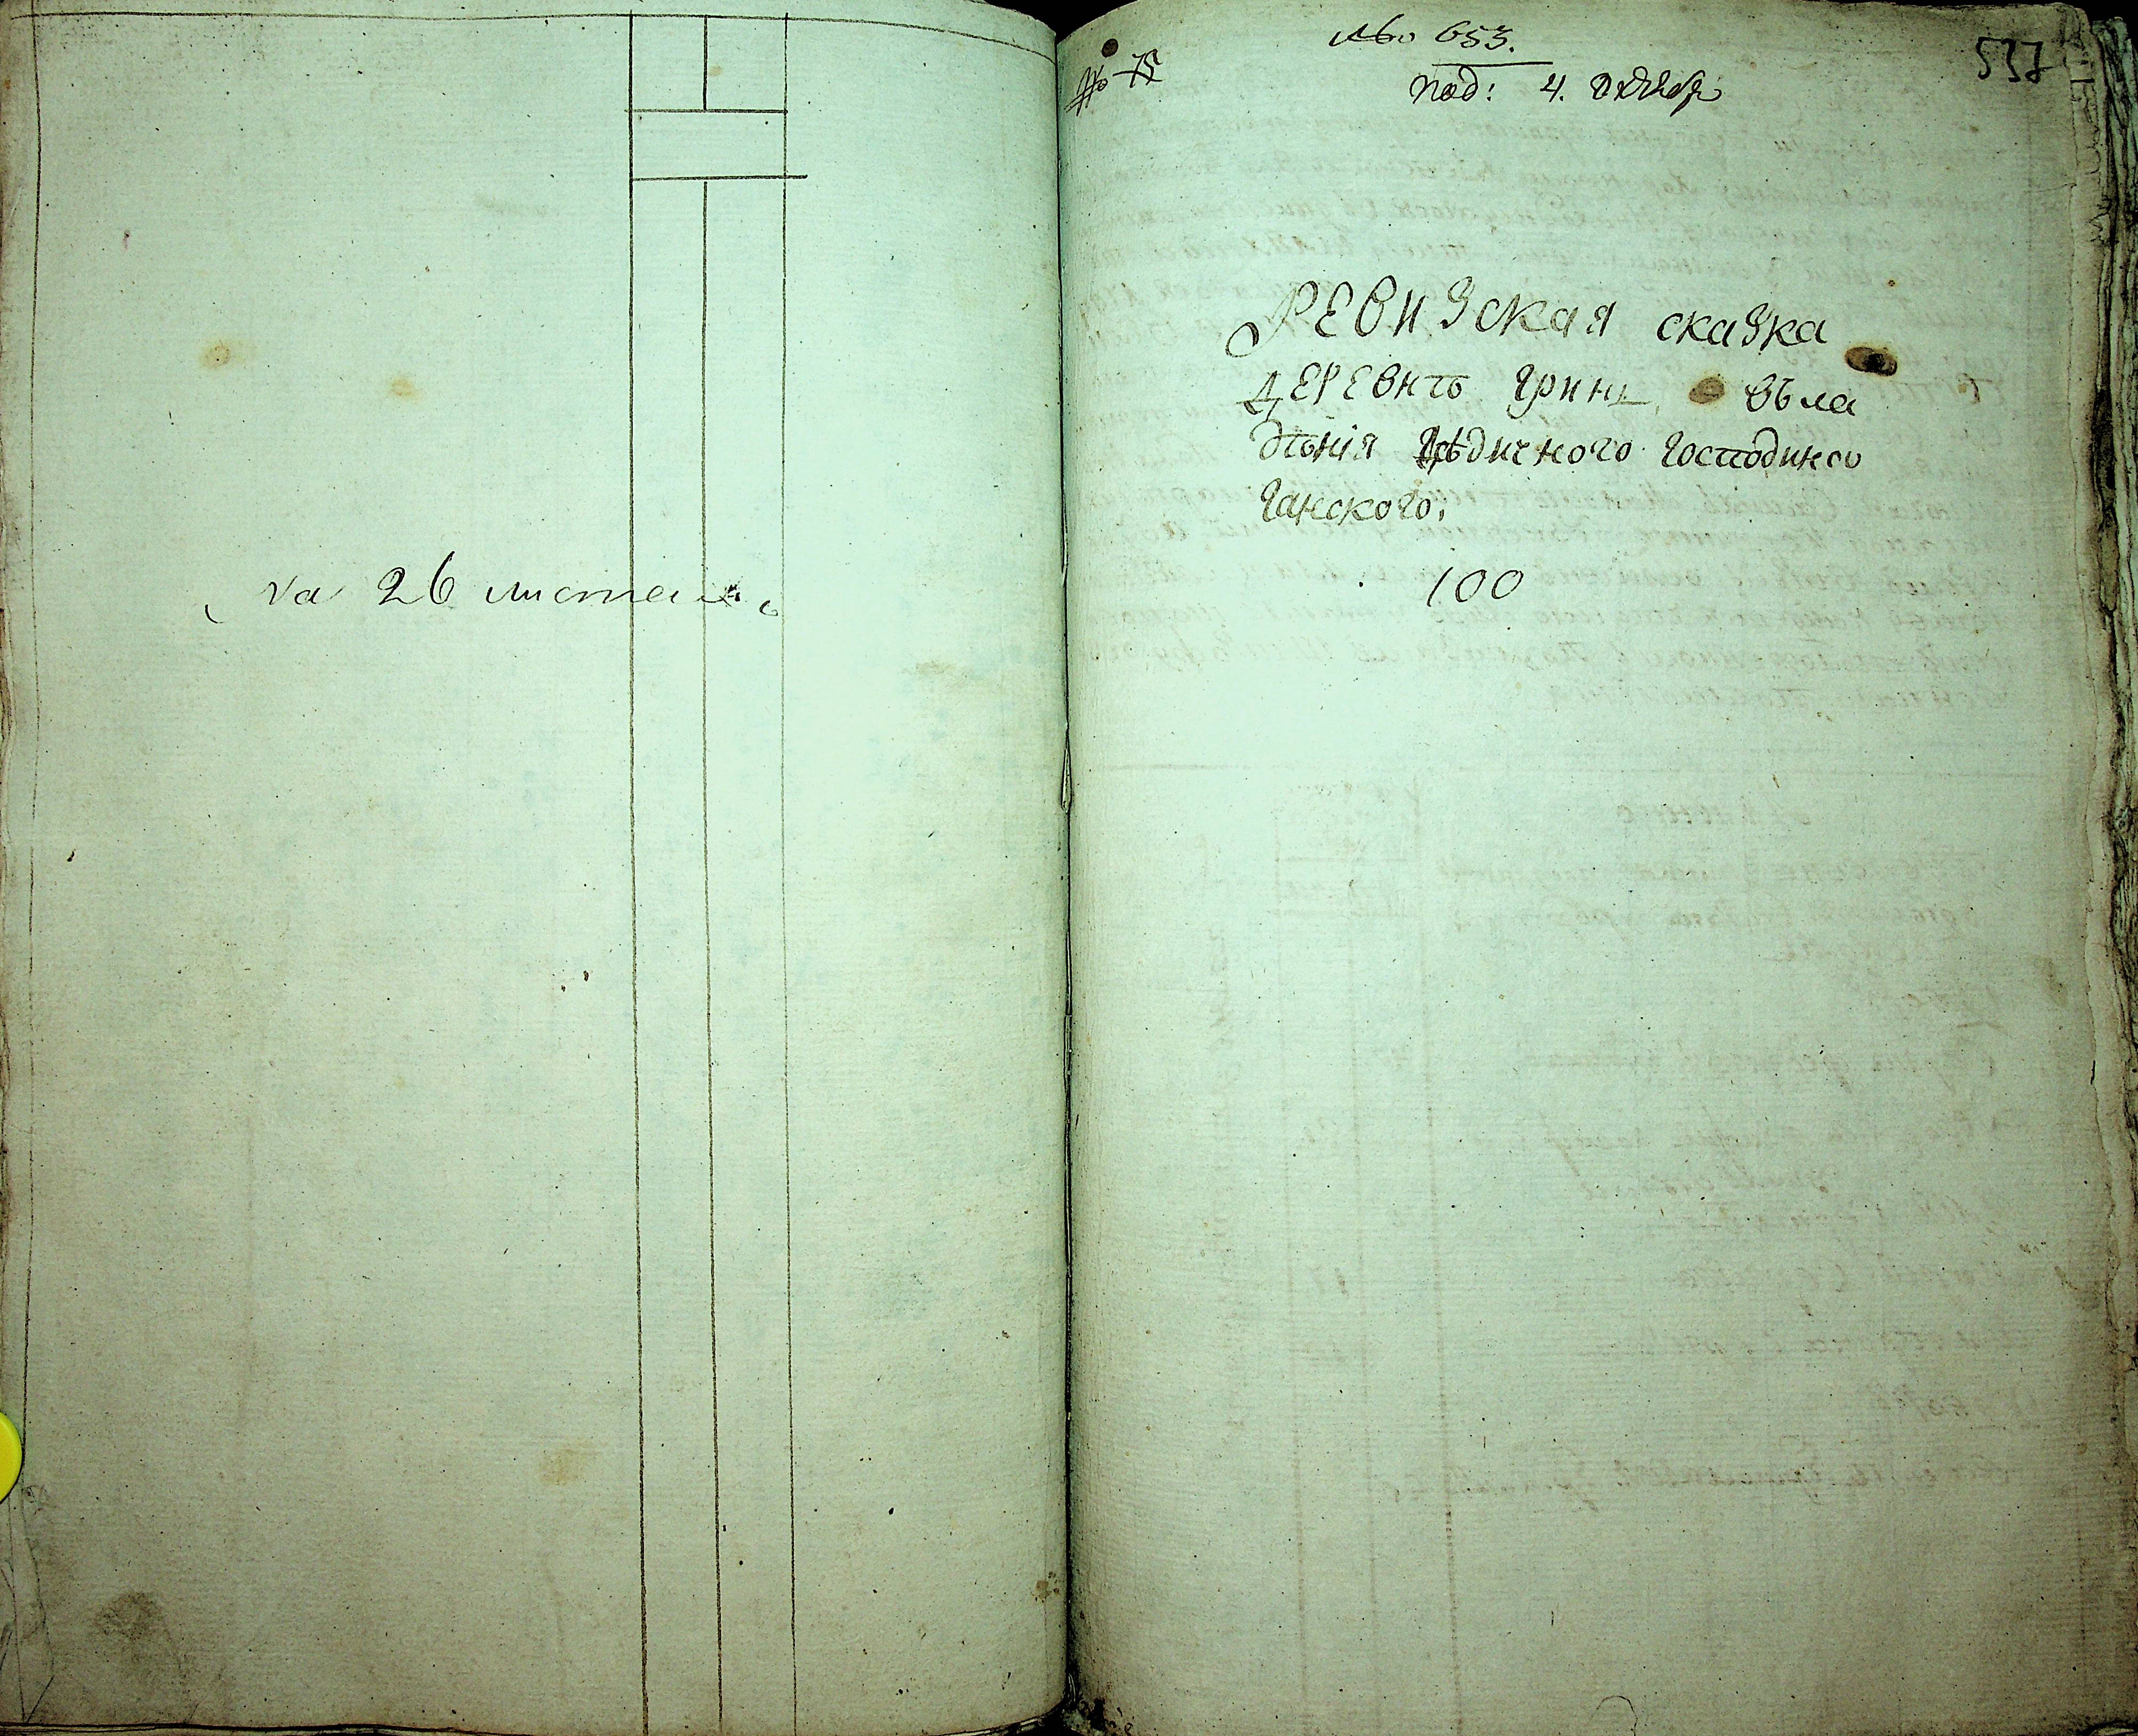 на 26 листахъ
№ 75
№ 653.
под: 4. Октября
537
РЕВИЗская сказка
ДЕРЕВнѣ Грин въла
дѣнія дѣдичного господина
Ганского.
100